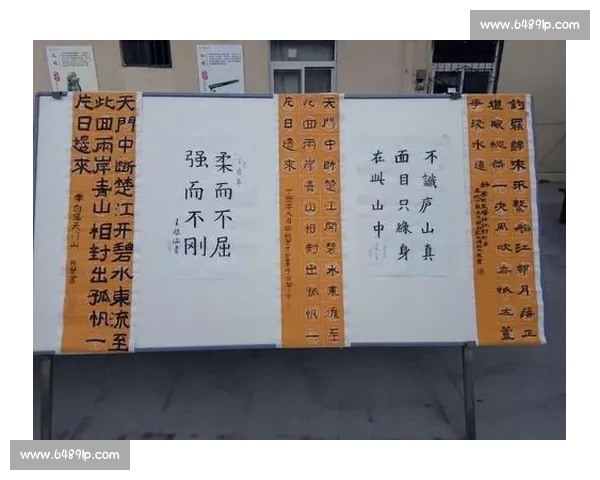 www.6489lp.com
釣罷歸來不繫船江邨月落正
堪眠縱然一夜風吹去祇在蘆
不識庐山真
面目只緣身
在此山中
天門中斷楚江開碧水東流至
此回兩岸青山相封出孤帆一
片日邊來
柔而不屈
强而不刚
天門中斷楚江开碧水東流至
此回兩岸青山相封出孤帆一
片日邊來
李白望天门山
www.6489lp.com